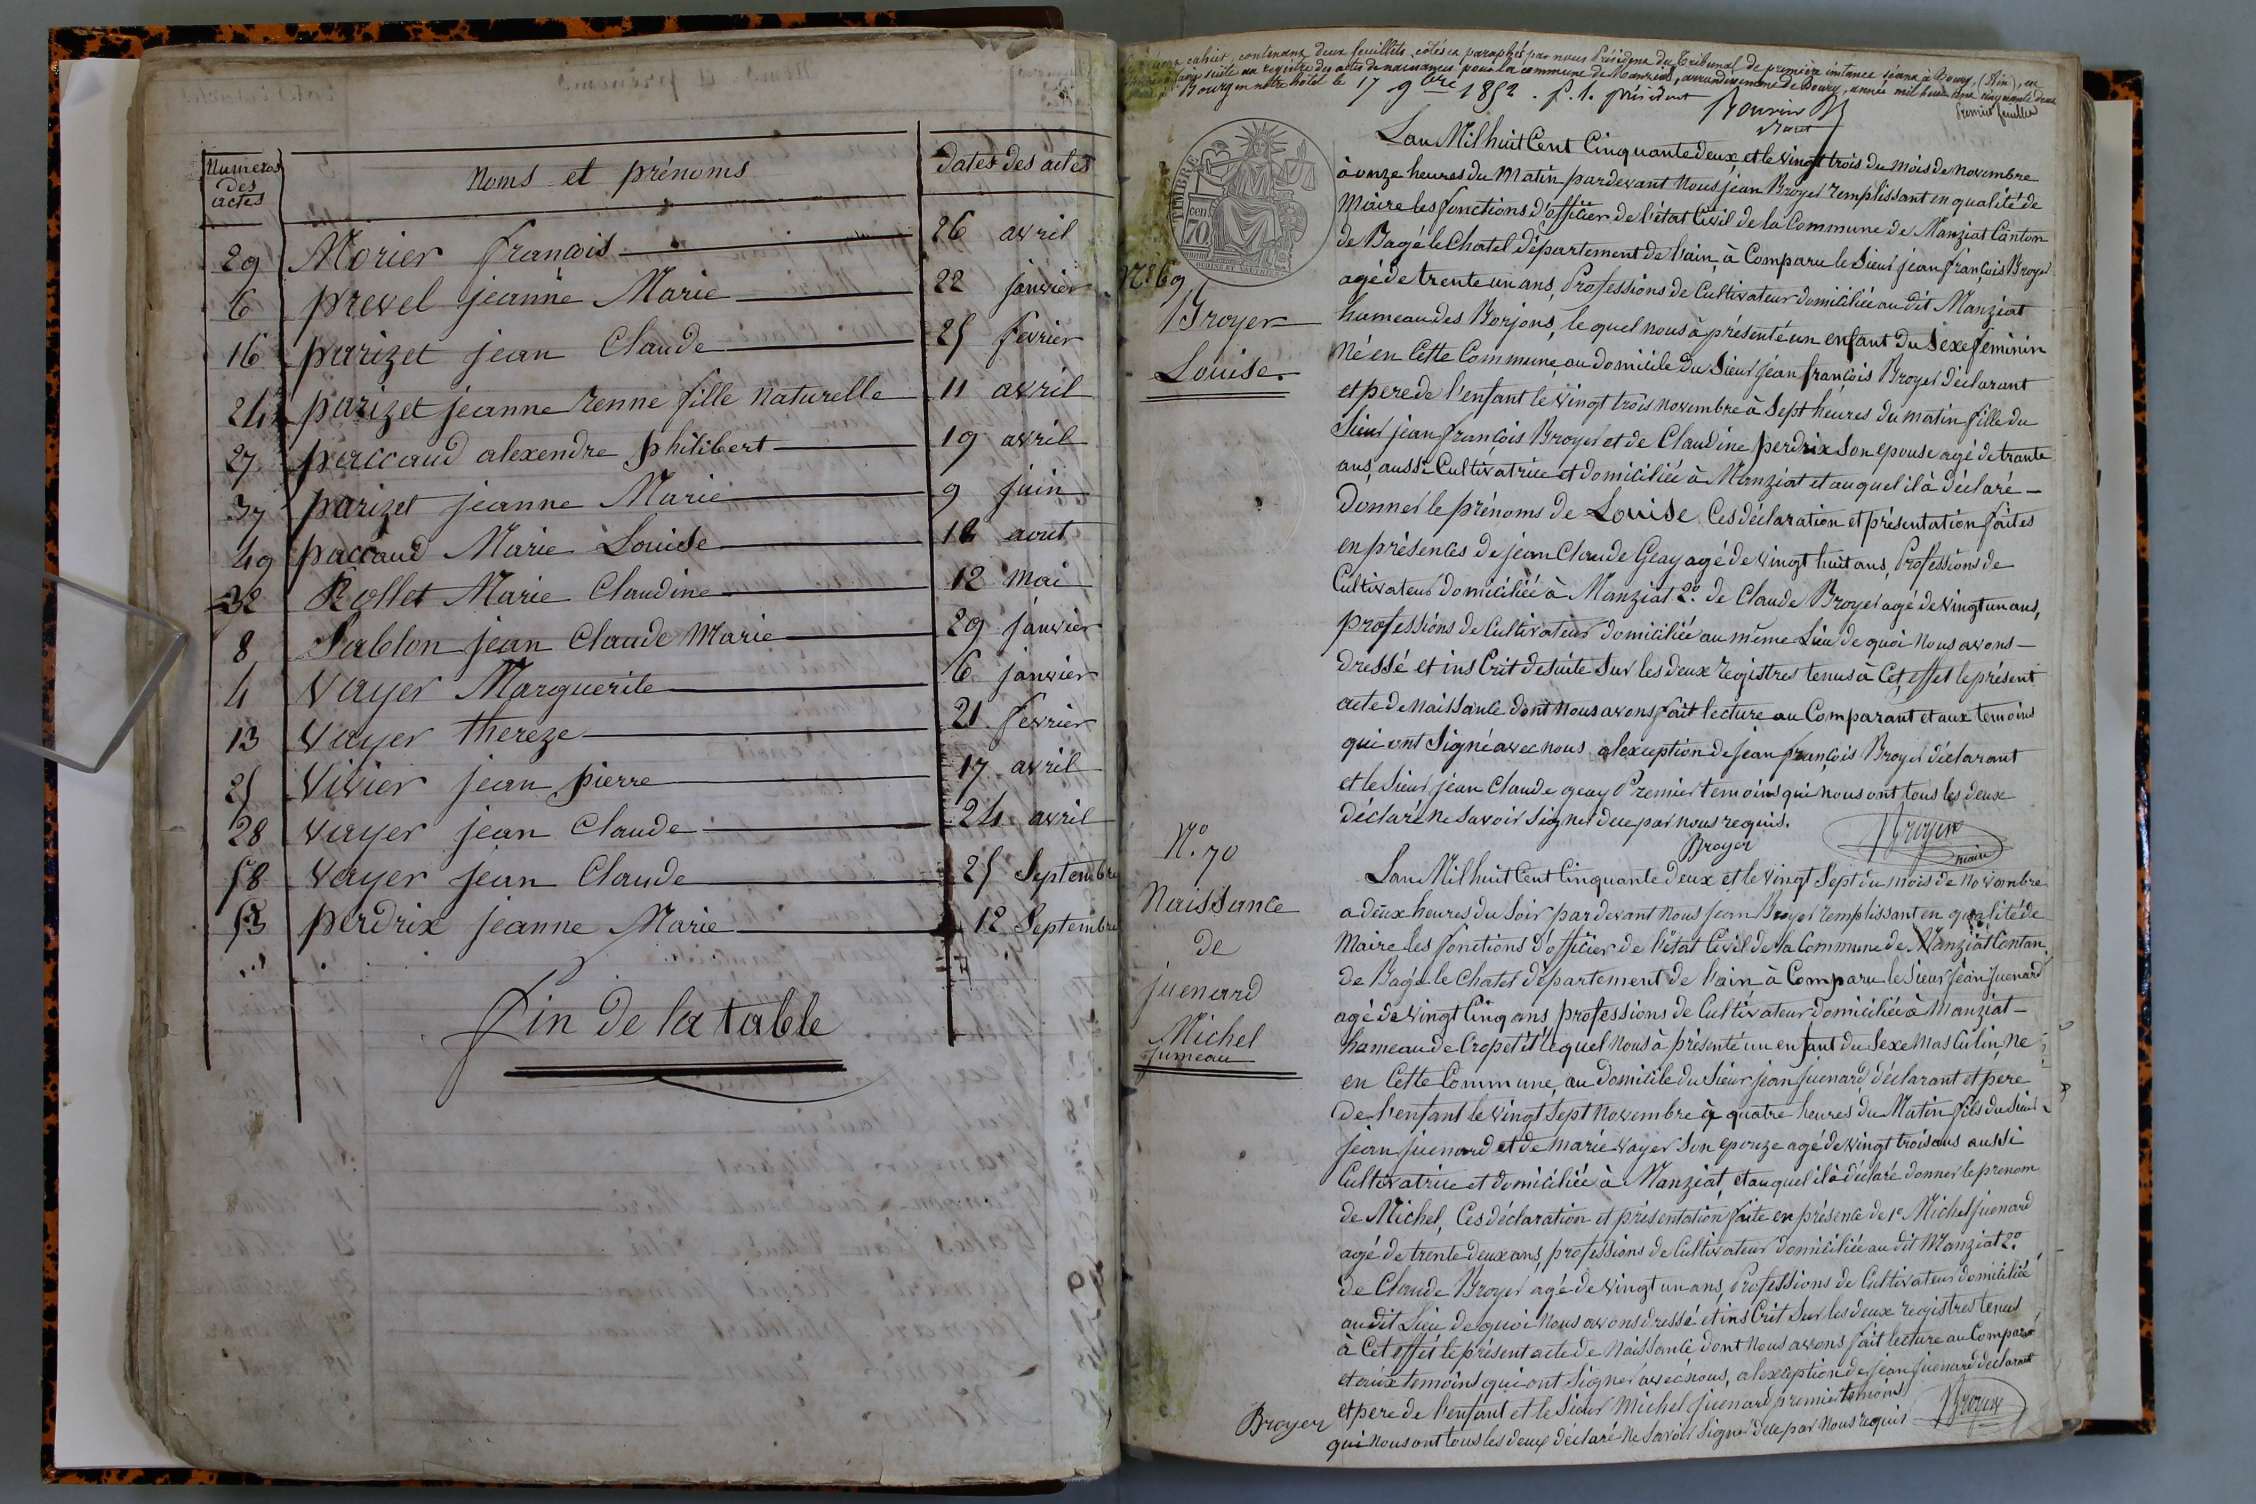 Numeros des actes	Noms et prénoms	dates des actes
29 Morier françois 26 avril
6 prevel jeanne Marie 22 janvier
16 parizet jean Claude 25 fevrier
24 parizet jeanne renne fille naturelle 11 avril
27 paccaud alexendre philibert 19 avril
37 parizet jeanne Marie 9 juin
49 paccaud Marie Louise 18 aout
32 Rollet Marie Claudine 12 mai
8 Sablon jean Claude Marie 29 janvier
4 Vayer Marguerite 6 janvier
13 Vayer thereze 21 fevrier
25 Vivier jean pierre 17 avril
28 Vayer jean Claude 24 avril
58 Vayer jean Claude 25 Septembre
53 perdrix jeanne Marie 12 Septembre
fin de la table
cahier, contenant deux feuillets, cotés et paraphés par nous Président du Tribunal de première instance séant à Bourg (Ain), en
suite au registre des actes de naissances pour la commune de Manziat, arrondissement de Bourg, année mil huit cent cinquante deux
Bourg en notre hôtel le 17 9bre 1852. p. l. président
Premier feuillet
TIMBRE
70 cen
Nº 69
Broyer
Louise
Lan Mil huit Cent Cinquante deux et le vingt trois du mois de novembre
à onze heures du matin pardevant Nous jean Broyer remplissant en qualité de
Maire les fonctions d'officier de l'état Civil de la Commune de Manziat Canton
de Bagé le Chatel département de l'ain, à Comparu le Sieur jean françois Broyer
agé de trente un ans, Professions de Cultivateur domiciliée au dit Manziat
hameau des Borjons, le quel nous à présenté un enfant du Sexe feminin
Né en Cette Commune au domicile du Sieur jean françois Broyer déclarant
et pere de l'enfant le vingt trois novembre à Sept heures du matin fille du
Sieur jean françois Broyer et de Claudine perdrix Son epouse agé de trante
ans aussi Cultivatrice et domiciliée à Manziat et auquel il à déclaré
Donner le prénoms de Louise. Ces déclaration et présentation faites
en présences de jean Claude Geay agé de vingt huit ans, Professions de
Cultivateur domiciliée à Manziat 2º. de Claude Broyer agé de vingt un ans,
professions de Cultivateur domiciliée au même Lieu de quoi Nous avons
dressé et insCrit desuite Sur les deux registres tenus à Cet effet le présent
acte de naissance dont nous avons fait lecture au Comparant et aux temoins
qui ont Signé avec nous alexception de jean françois Broyer déclarant
et le Sieur jean Claude geay Premier temoins qui nous ont tous les deux
déclaré ne Savoir Signer dece par nous requis.
Broyer
Broyer
maire
Nº. 70
Naissance
de
juenard
Michel
jumeau
Lan Mil huit Cent Cinquante deux et le vingt Sept du mois de Novembre
a deux heures du Soir pardevant Nous jean Broyer remplissant en qualité de
Maire les fonctions d'officier de l'état Civil de la Commune de Manziat Contan
de Bagé le Chatel département de l'ain à Comparu le Sieur jean juenard
agé de vingt Cinq ans professions de Cultivateur domiciliée à Manziat
hameau de Cropetet lequel nous à présenté un enfant du Sexe masculin, né
en Cette Commune, au domicile du Sieur jean juenard déclarant et pere
de l'enfant le vingt Sept Novembre à quatre heures du Matin fils du Sieur
jean juenard et de marie vayer Son epouze agé de vingt trois ans aussi
Cultivatrice et domiciliée à Manziat, et auquel il à déclaré donner le prenom
de Michel, Ces déclaration et présentation faite en présence de 1º Michel juenard
agé de trente deux ans, professions de Cultivateur domiciliée au dit Manziat 2º.
de Claude Broyer agé de vingt un ans, Professions de Cultivateur domiciliée
audit Lieu de quoi Nous avons dressé et insCrit Sur les deux registres tenus
à Cet effet le présent acte de Naissance dont Nous avons fait lecture au Comparé
et aux temoins qui ont Signer avec nous, alexception de jean juenard déclarant
et pere de l'enfant et le Sieur Michel juenard premier temoins
qui Nous ont tous les deux déclaré ne Savoir Signer dece par nous requis
Broyer
Broyer